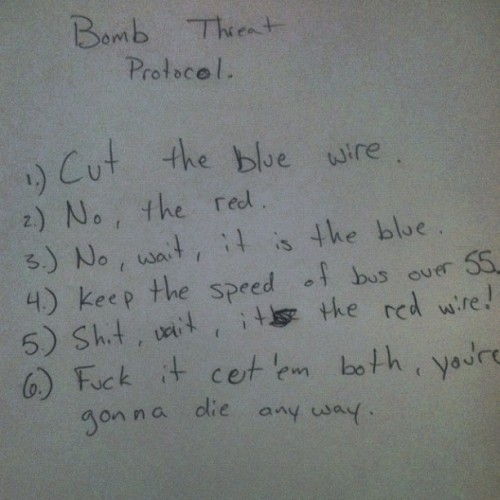 Bomb Threat
Protocol.
1.) Cut the blue wire.
2.) No, the red.
3.) No, wait, it is the blue.
4.) Keep the speed of bus over 55.
5.) Shit, wait, it the red wire!
6.) Fuck it cut 'em both, you're
gonna die any way.